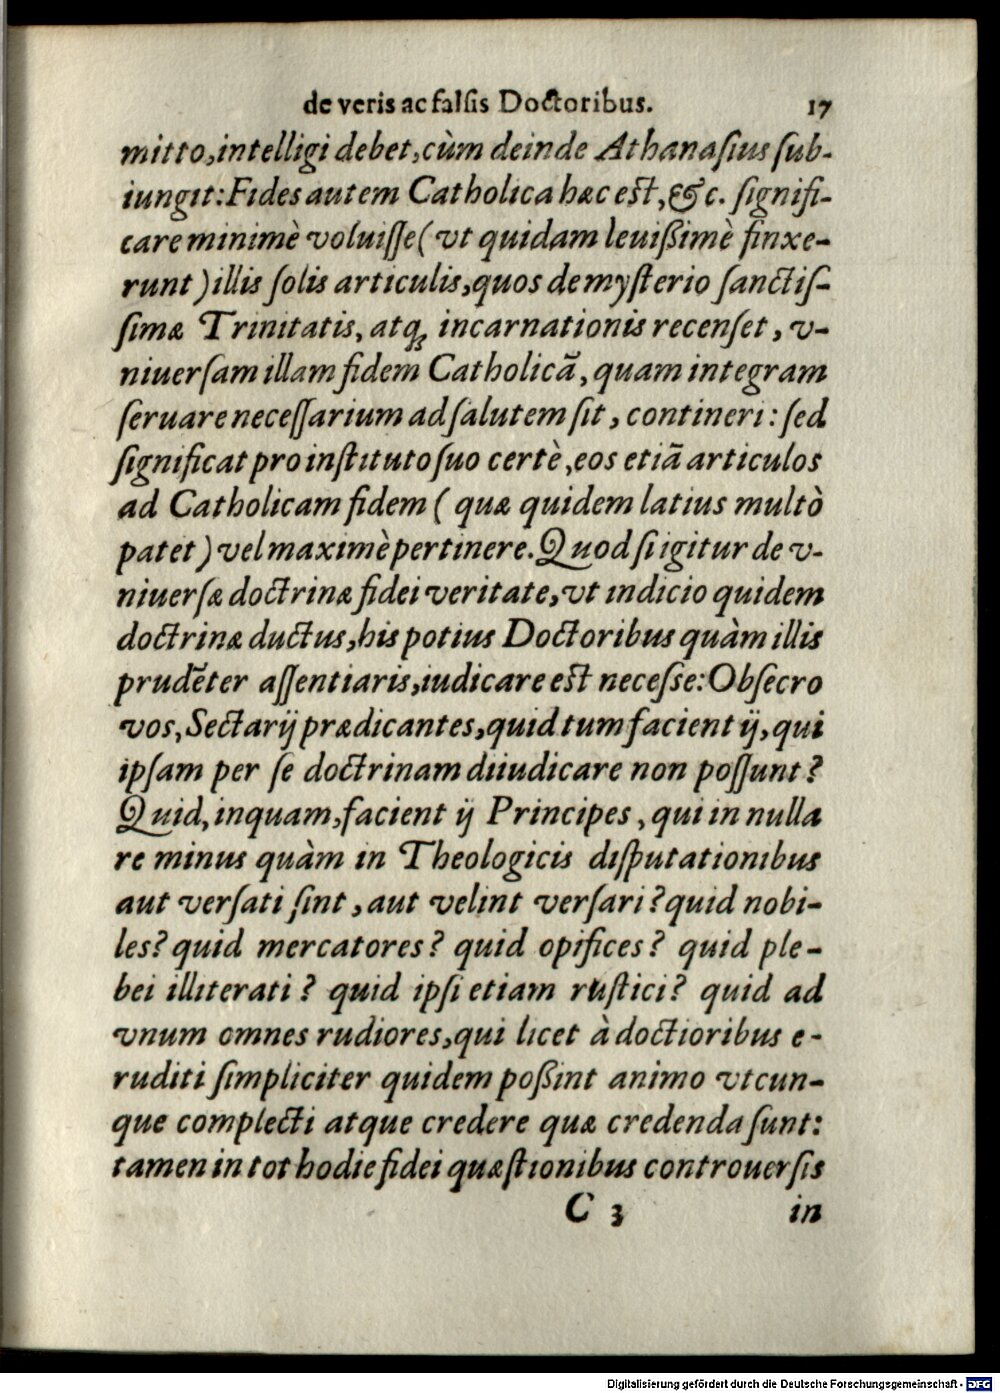 de veris ac falsis Doctoribus. 17
mitto, intelligi debet, cùm deinde Athanaſius ſub-
iungit: Fides autem Catholica hæc eſt, &c. ſignifi-
care minimè voluiſſe (vt quidam leuißimè finxe-
runt) illis ſolis articulis, quos de myſterio ſanctiſ-
ſimæ Trinitatis, atq; incarnationis recenſet, v-
niuerſam illam fidem Catholicã, quam integram
ſeruare neceſſarium ad ſalutem ſit, contineri: ſed
ſignificat pro inſtituto ſuo certè, eos etiã articulos
ad Catholicam fidem (quæ quidem latius multò
patet) vel maximè pertinere. Quod ſi igitur de v-
niuerſæ doctrinæ fidei veritate, vt indicio quidem
doctrinæ ductus, his potius Doctoribus quàm illis
prudẽter aſſentiaris, iudicare eſt neceſse: Obſecro
vos, Sectarij prædicantes, quid tum facient ij, qui
ipſam per ſe doctrinam diiudicare non poſſunt?
Quid, inquam, facient ij Principes, qui in nulla
re minus quàm in Theologicis diſputationibus
aut verſati ſint, aut velint verſari? quid nobi-
les? quid mercatores? quid opifices? quid ple-
bei illiterati? quid ipſi etiam ruſtici? quid ad
vnum omnes rudiores, qui licet à doctioribus e-
ruditi ſimpliciter quidem poßint animo vtcun-
que complecti atque credere quæ credenda ſunt:
tamen in tot hodie fidei quæſtionibus controuerſis
C 3 in
Digitalisierung gefördert durch die Deutsche Forschungsgemeinschaft - DFG